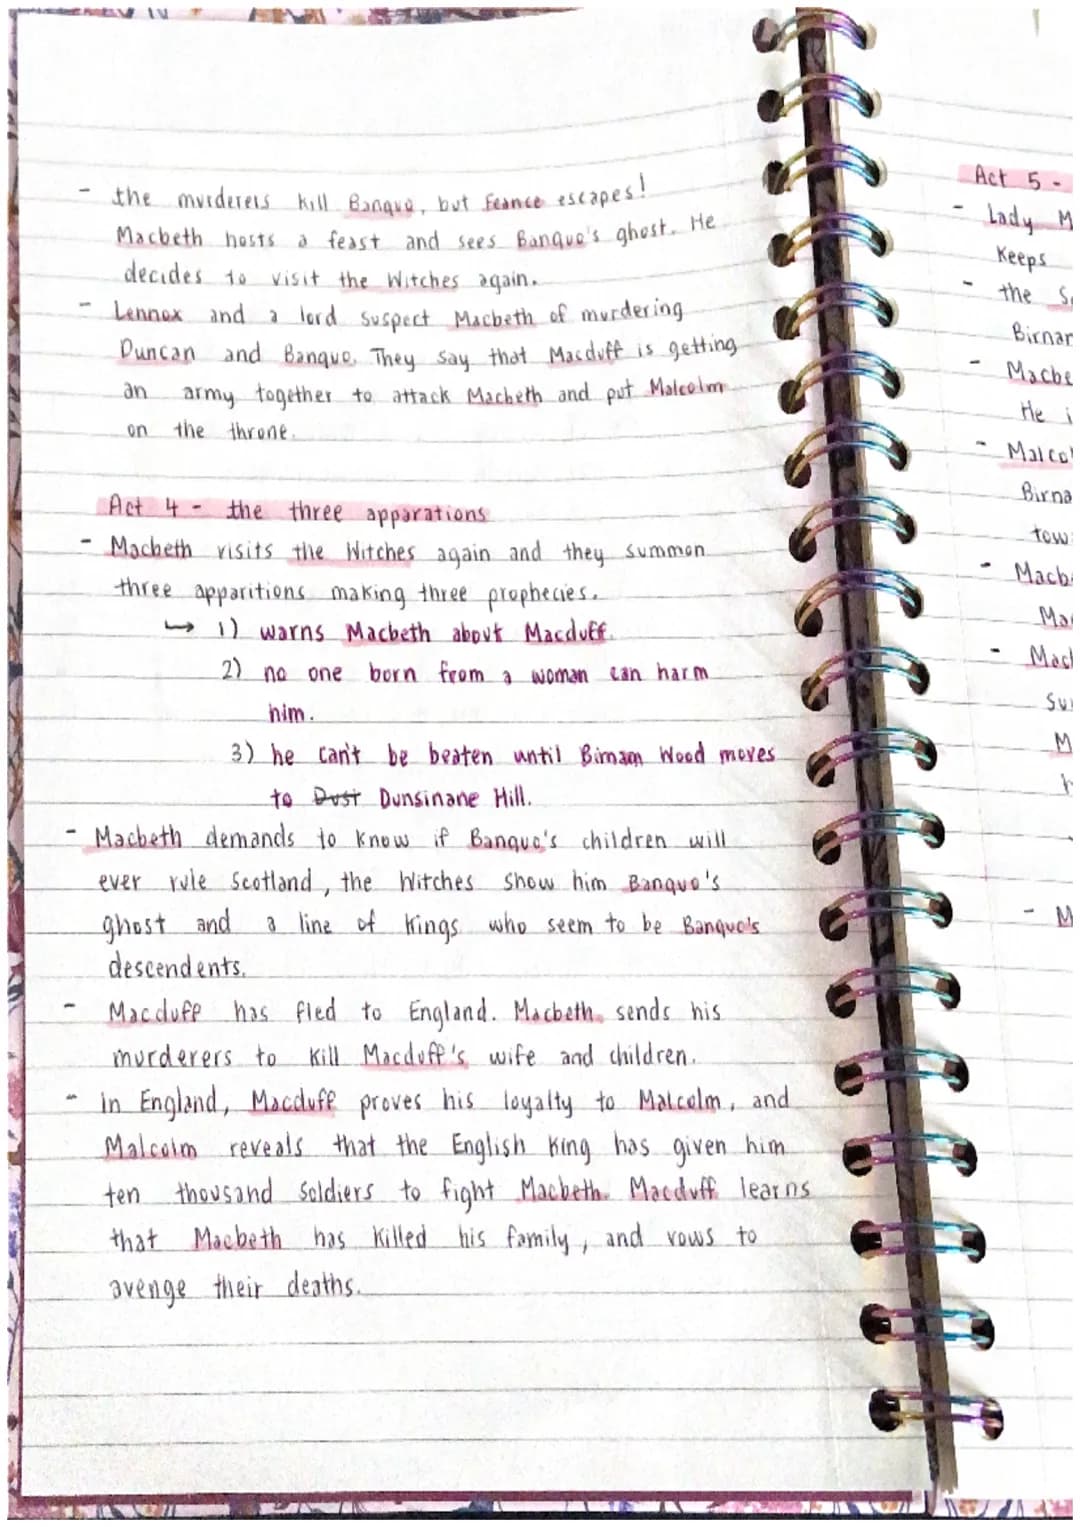 - the murderers kill Banquo, but Feance escapes!
Macbeth hosts a feast and sees Banquo's ghost. He
decides to visit the Witches again.
- Lennox and a lord suspect Macbeth of murdering
Duncan and Banquo. They say that Macduff is getting
an army together to attack Macbeth and put Malcolm
on the throne.
Act 4 - the three apparations
- Macbeth visits the Witches again and they summon
three apparitions making three prophecies.
→ 1) warns Macbeth about Macduff.
2) no one born from a woman can harm
him.
3) he can't be beaten until Birnam Wood moves
to Dust Dunsinane Hill.
- Macbeth demands to know if Banquo's children will
ever rule Scotland, the Witches show him Banquo's
ghost and a line of kings who seem to be Banquo's
descendents.
- Macduff has fled to England. Macbeth sends his
murderers to kill Macduff's wife and children.
- in England, Macduff proves his loyalty to Malcolm, and
Malcolm reveals that the English king has given him
ten thousand soldiers to fight Macbeth. Macduff learns
that Macbeth has killed his family, and vows to
avenge their deaths.
Act 5 -
- Lady M
Keeps
- the S
Birnar
- Macbe
He i
- Malcol
Birna
tow
- Macb
Ma
- Mac
su
M
- M